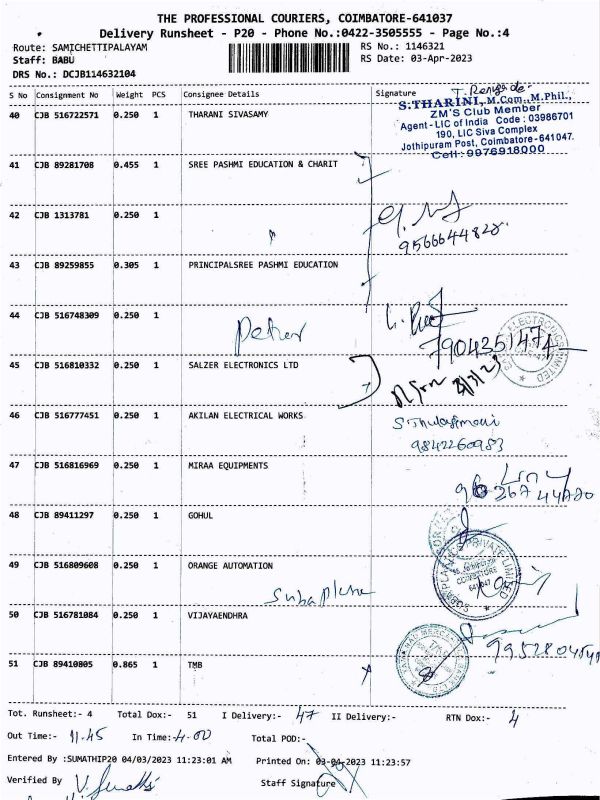 THE PROFESSIONAL COURIERS, COIMBATORE-641037
Delivery Runsheet - P20 - Phone No.:0422-3505555 - Page No.:4
Route: SAMICHETTIPALAYAM RS No.: 1146321
Staff: BABU RS Date: 03-Apr-2023
DRS No.: DCJB114632104
S No Consignment No Weight PCS Consignee Details Signature
40 CJB 516722571 0.250 1 THARANI SIVASAMY
S.THARINI, M.Com., M.Phil.,
ZM'S Club Member
Agent - LIC of India Code : 03986701
190, LIC Siva Complex
Jothipuram Post, Coimbatore-641047.
Cell : 9976918000
41 CJB 89281708 0.455 1 SREE PASHMI EDUCATION & CHARIT
42 CJB 1313781 0.250 1
9566644828
43 CJB 89259855 0.305 1 PRINCIPALSREE PASHMI EDUCATION
44 CJB 516748309 0.250 1
7904351474
45 CJB 516810332 0.250 1 SALZER ELECTRONICS LTD
46 CJB 516777451 0.250 1 AKILAN ELECTRICAL WORKS
9842260983
47 CJB 516816969 0.250 1 MIRAA EQUIPMENTS
48 CJB 89411297 0.250 1 GOHUL
49 CJB 516809608 0.250 1 ORANGE AUTOMATION
50 CJB 516781084 0.250 1 VIJAYAENDHRA
51 CJB 89410805 0.865 1 TMB
Tot. Runsheet:- 4 Total Dox:- 51 I Delivery:- 47 II Delivery:- RTN Dox:- 4
Out Time:- 11.45 In Time:- 4.00 Total POD:-
Entered By :SUMATHIP20 04/03/2023 11:23:01 AM Printed On: 03-04-2023 11:23:57
Verified By Staff Signature